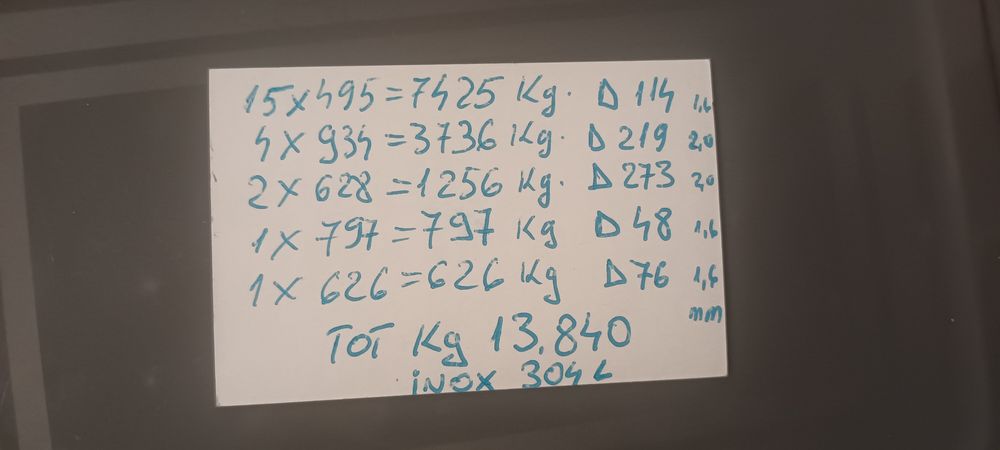 15x495=7425 Kg. D 114 1,6
4x934=3736 Kg. D 219 2,0
2x628=1256 Kg. D 273 2,0
1x797=797 Kg D 48 1,6
1x626=626 Kg D 76 1,6
mm
TOT Kg 13.840
iNOX 304 L